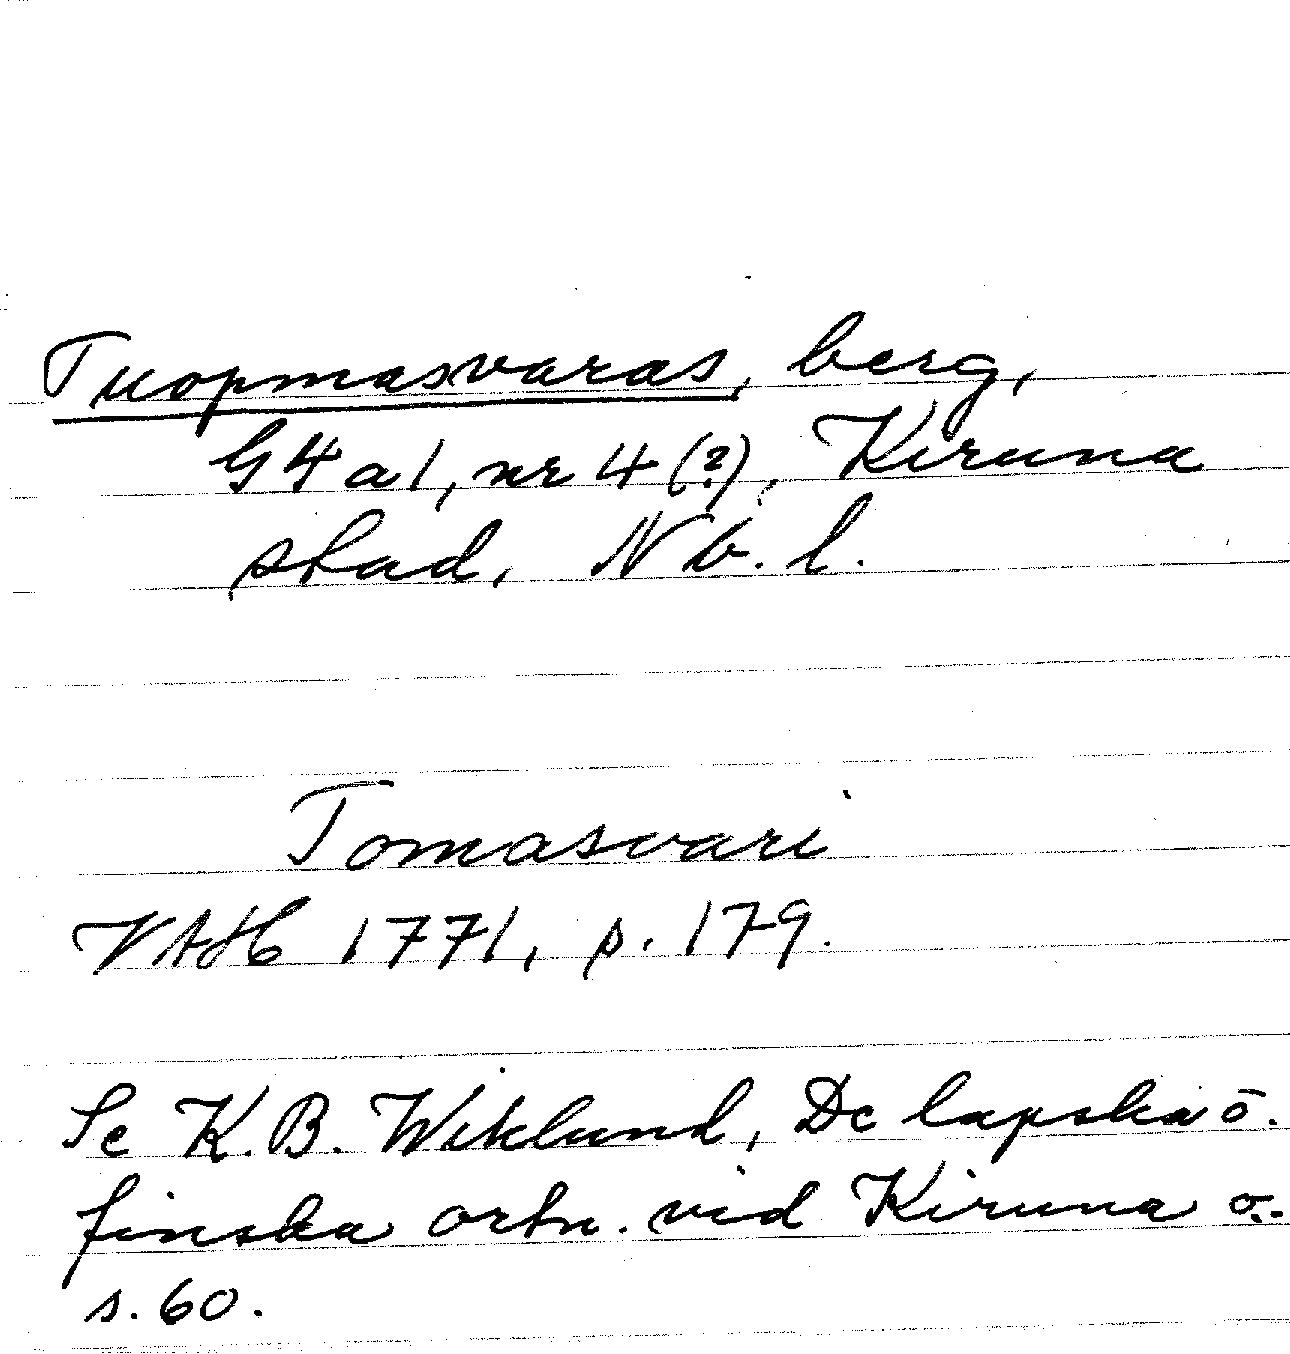 Tuopmasvaras, berg,
G4a1, nr 4(?), Kiruna
stad, Nb. l.
Tomasvari
VAH 1771, p. 179.
Se K.B. Wiklund, De lapska o.
finska ortn. vid Kiruna o.
s. 60.